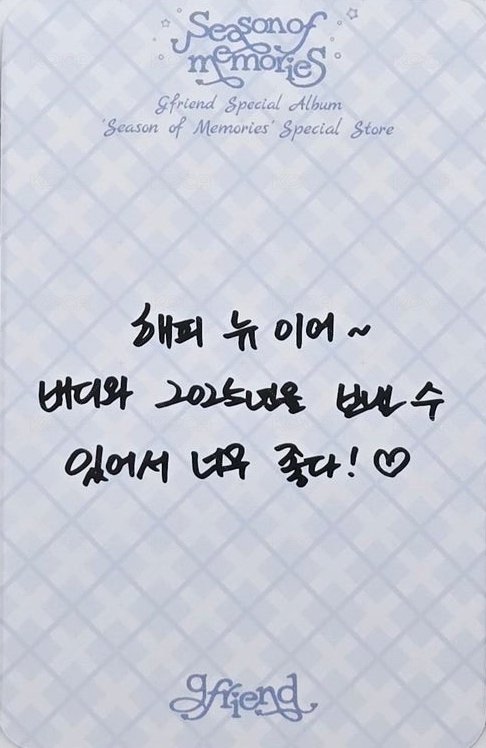 Season of
memories
Gfriend Special Album
'Season of Memories' Special Store
해피 뉴 이어~
버디와 2025년을 보낼 수
있어서 너무 좋다!♡
gfriend